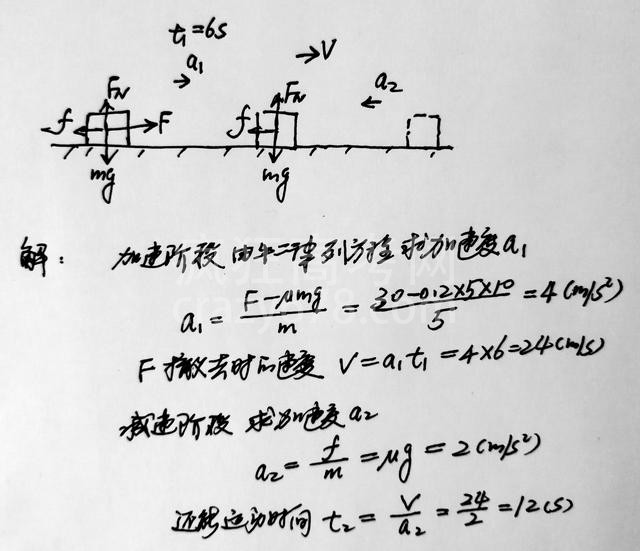 t₁=6s
a₁ V a₂
FN FN
f F f
mg mg
解: 加速阶段 由牛二律列方程求加速度a₁
a₁ = (F-μmg)/m = (30-0.2×5×10)/5 = 4(m/s²)
F撤去时的速度 V=a₁t₁=4×6=24(m/s)
减速阶段 求加速度a₂
a₂ = f/m = μg = 2(m/s²)
还能运动时间 t₂ = V/a₂ = 24/2 = 12(s)